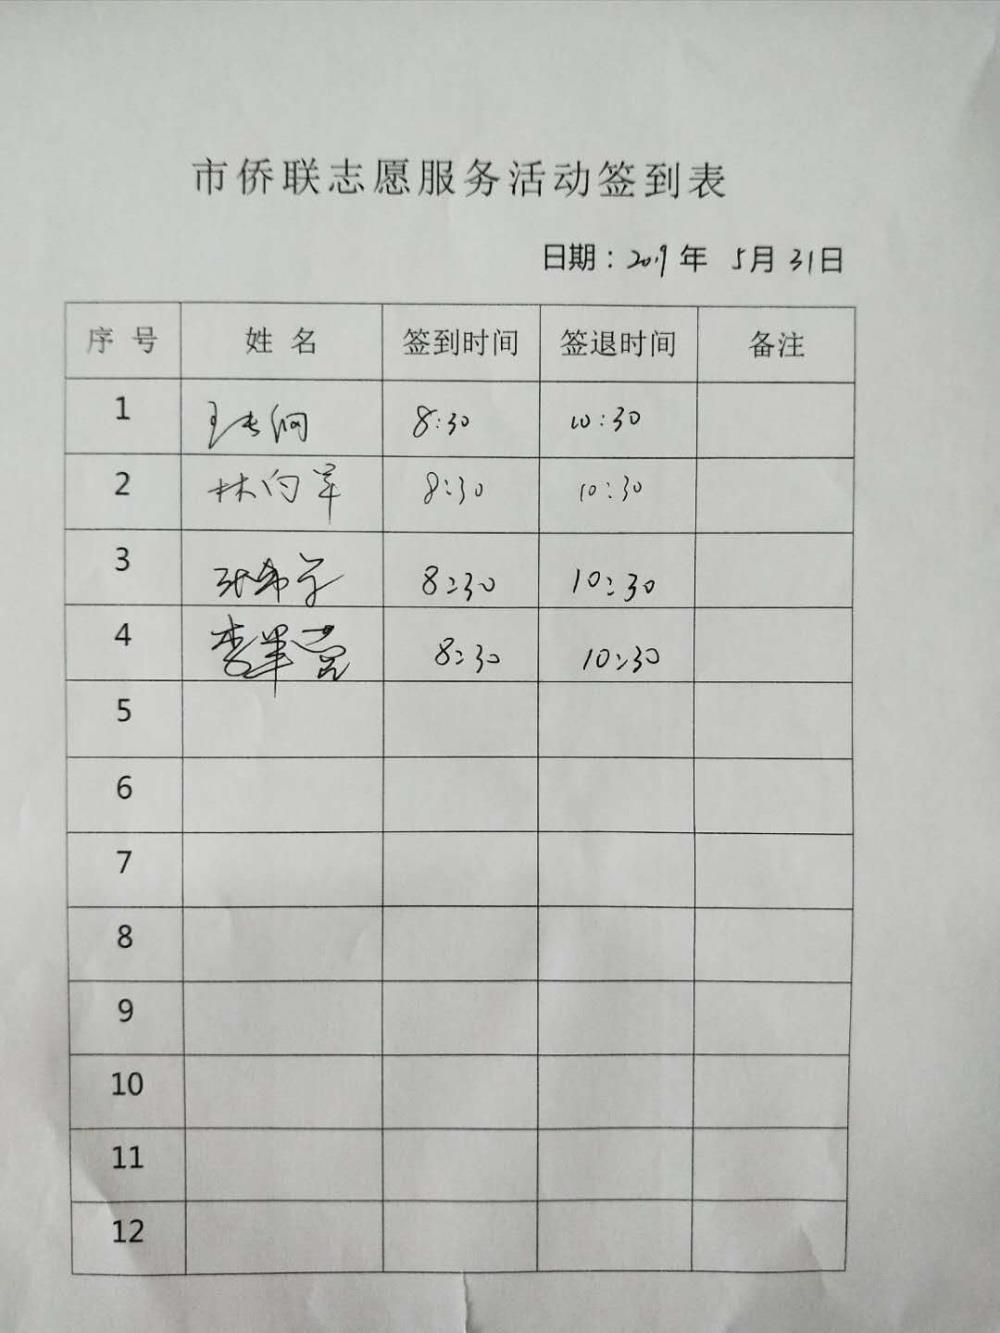 市侨联志愿服务活动签到表
日期：2019年 5月31日
序号 姓名 签到时间 签退时间 备注
1 8:30 10:30
2 林向军 8:30 10:30
3 8:30 10:30
4 8:30 10:30
5
6
7
8
9
10
11
12